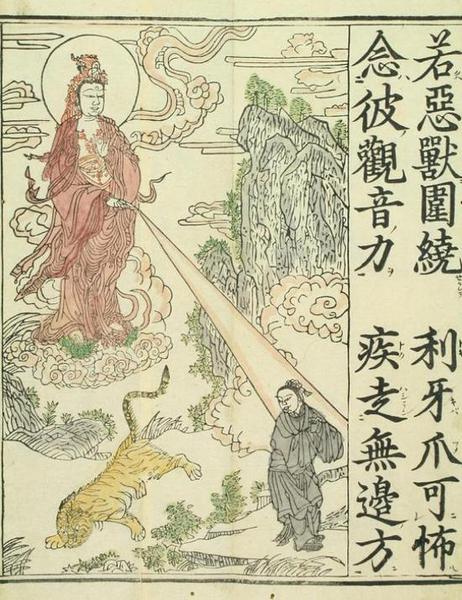 若惡獸圍繞 利牙爪可怖
念彼觀音力 疾走無邊方